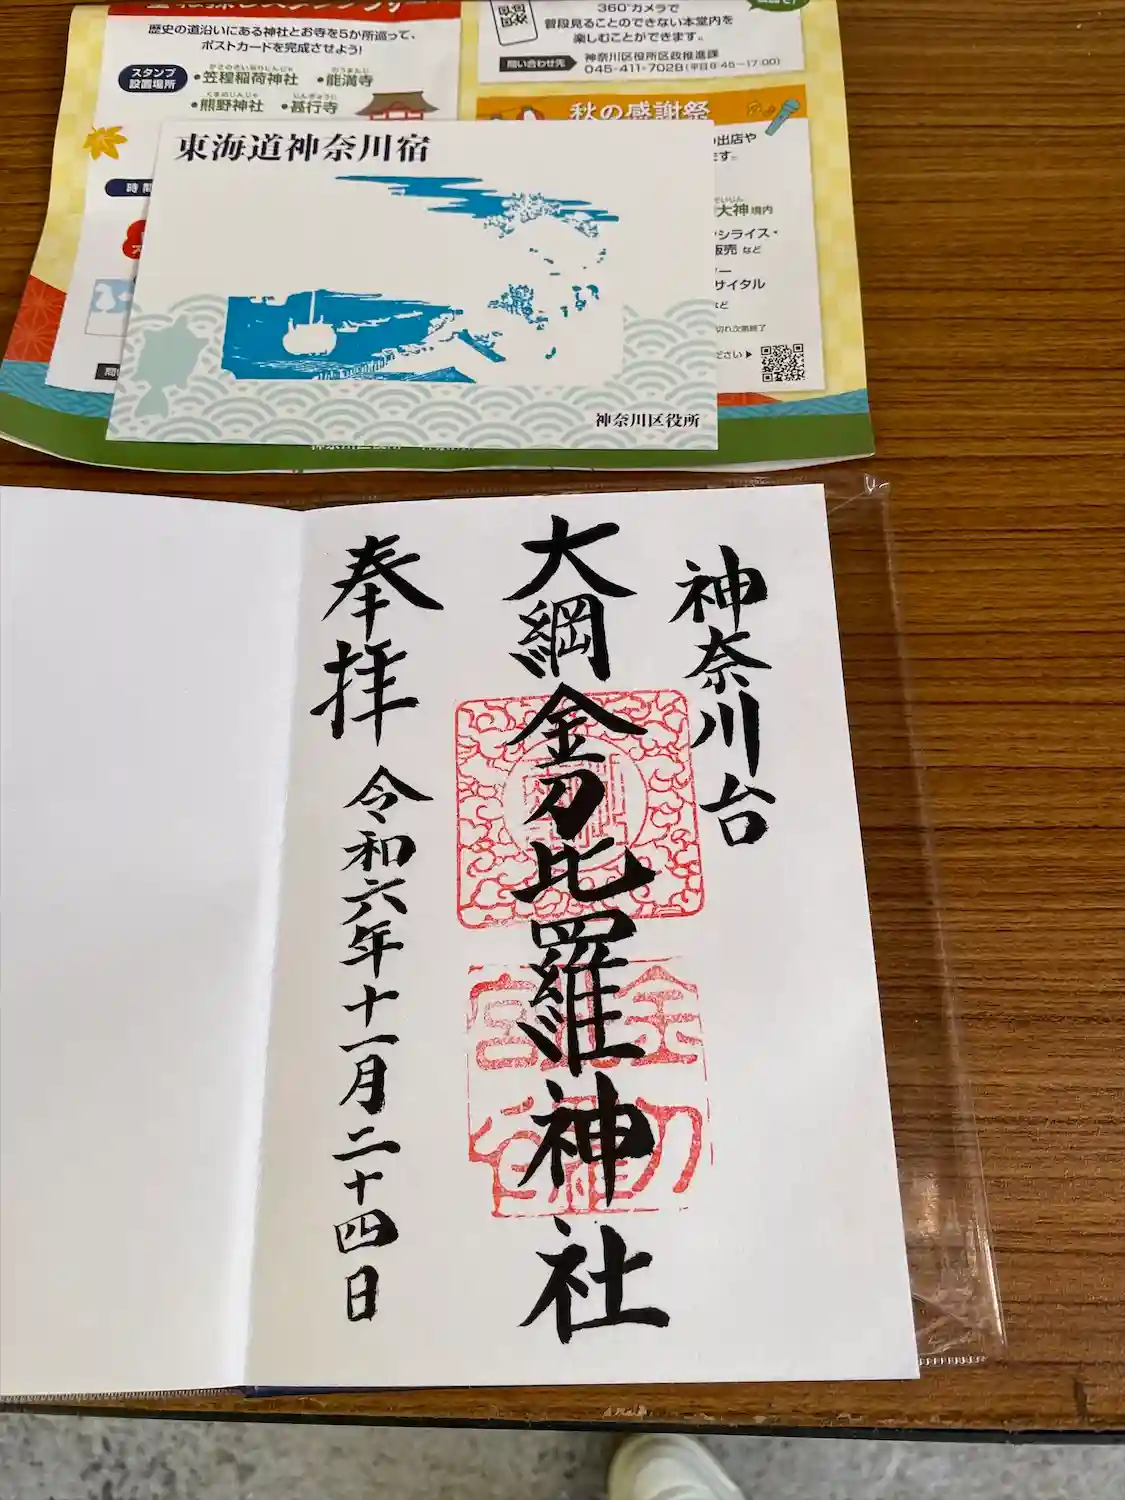 歴史の道沿いにある神社とお寺を5か所巡って、
ポストカードを完成させよう!
スタンプ
設置場所
・笠䅣稲荷神社 ・能満寺
・熊野神社 ・甚行寺
時間
360°カメラで
普段見ることのできない本堂内を
楽しむことができます。
問い合わせ先
神奈川区役所区政推進課
045-411-7028(平日8:45~17:00)
秋の感謝祭
出店や
ます。
大神 境内
シライス・
販売 など
サイタル
など
切れ次第終了
ださい▶
東海道神奈川宿
神奈川区役所
神奈川台
大綱金刀比羅神社
奉拝
令和六年十一月二十四日